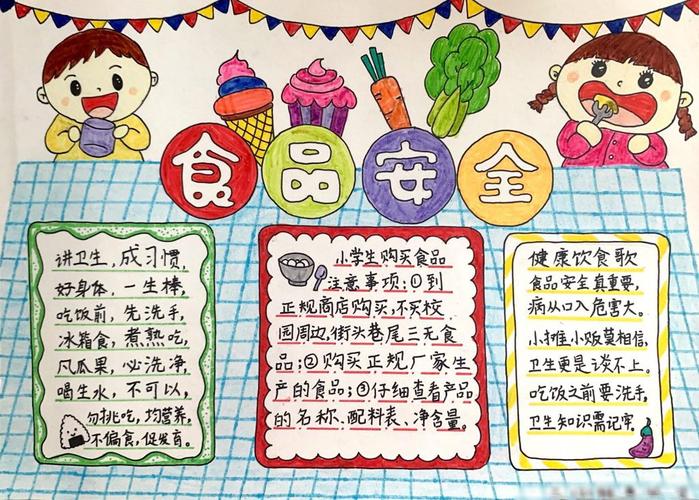 食品安全
讲卫生,成习惯,
好身体,一生棒,
吃饭前,先洗手,
冰箱食,煮熟吃,
凡瓜果,必洗净,
喝生水,不可以,
勿挑吃,均营养,
不偏食,促发育。
小学生购买食品
注意事项:①到
正规商店购买,不买校
园周边,街头巷尾三无食
品;②购买正规厂家生
产的食品;③仔细查看产品
的名称、配料表、净含量。
健康饮食歌
食品安全真重要,
病从口入危害大。
小摊小贩莫相信,
卫生更是谈不上。
吃饭之前要洗手,
卫生知识需记牢。